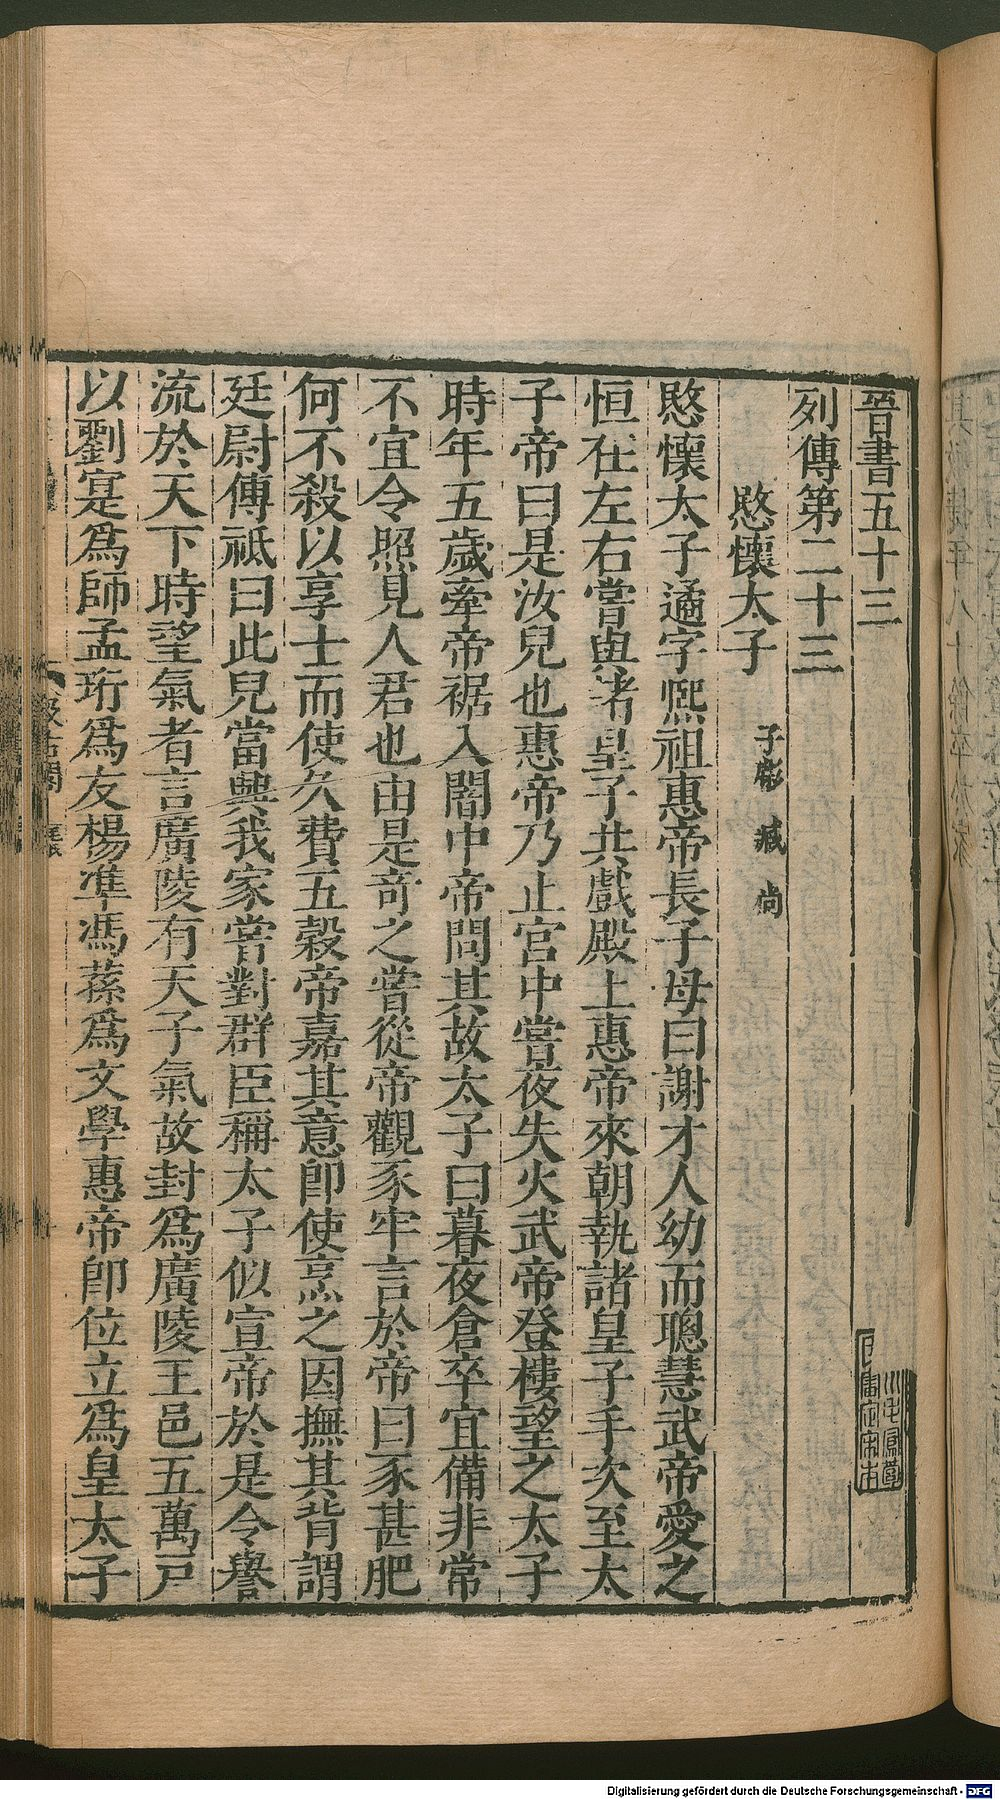 晉書五十三
列傳第二十三
愍懷太子 子彪 臧 尚
愍懷太子遹字熈祖惠帝長子母曰謝才人幼而聰慧武帝愛之
恒在左右嘗與諸皇子共戲殿上惠帝來朝執諸皇子手次至太
子帝曰是汝兒也惠帝乃止宮中嘗夜失火武帝登樓望之太子
時年五歲牽帝裾入闇中帝問其故太子曰暮夜倉卒宜備非常
不宜令照見人君也由是奇之嘗從帝觀豕牢言於帝曰豕甚肥
何不殺以享士而使久費五穀帝嘉其意即使烹之因撫其背謂
廷尉傅祗曰此兒當興我家嘗對群臣稱太子似宣帝於是令譽
流於天下時望氣者言廣陵有天子氣故封爲廣陵王邑五萬戶
以劉寔爲師孟珩爲友楊準馮蓀爲文學惠帝即位立爲皇太子
汲古閣
Digitalisierung gefördert durch die Deutsche Forschungsgemeinschaft - DFG